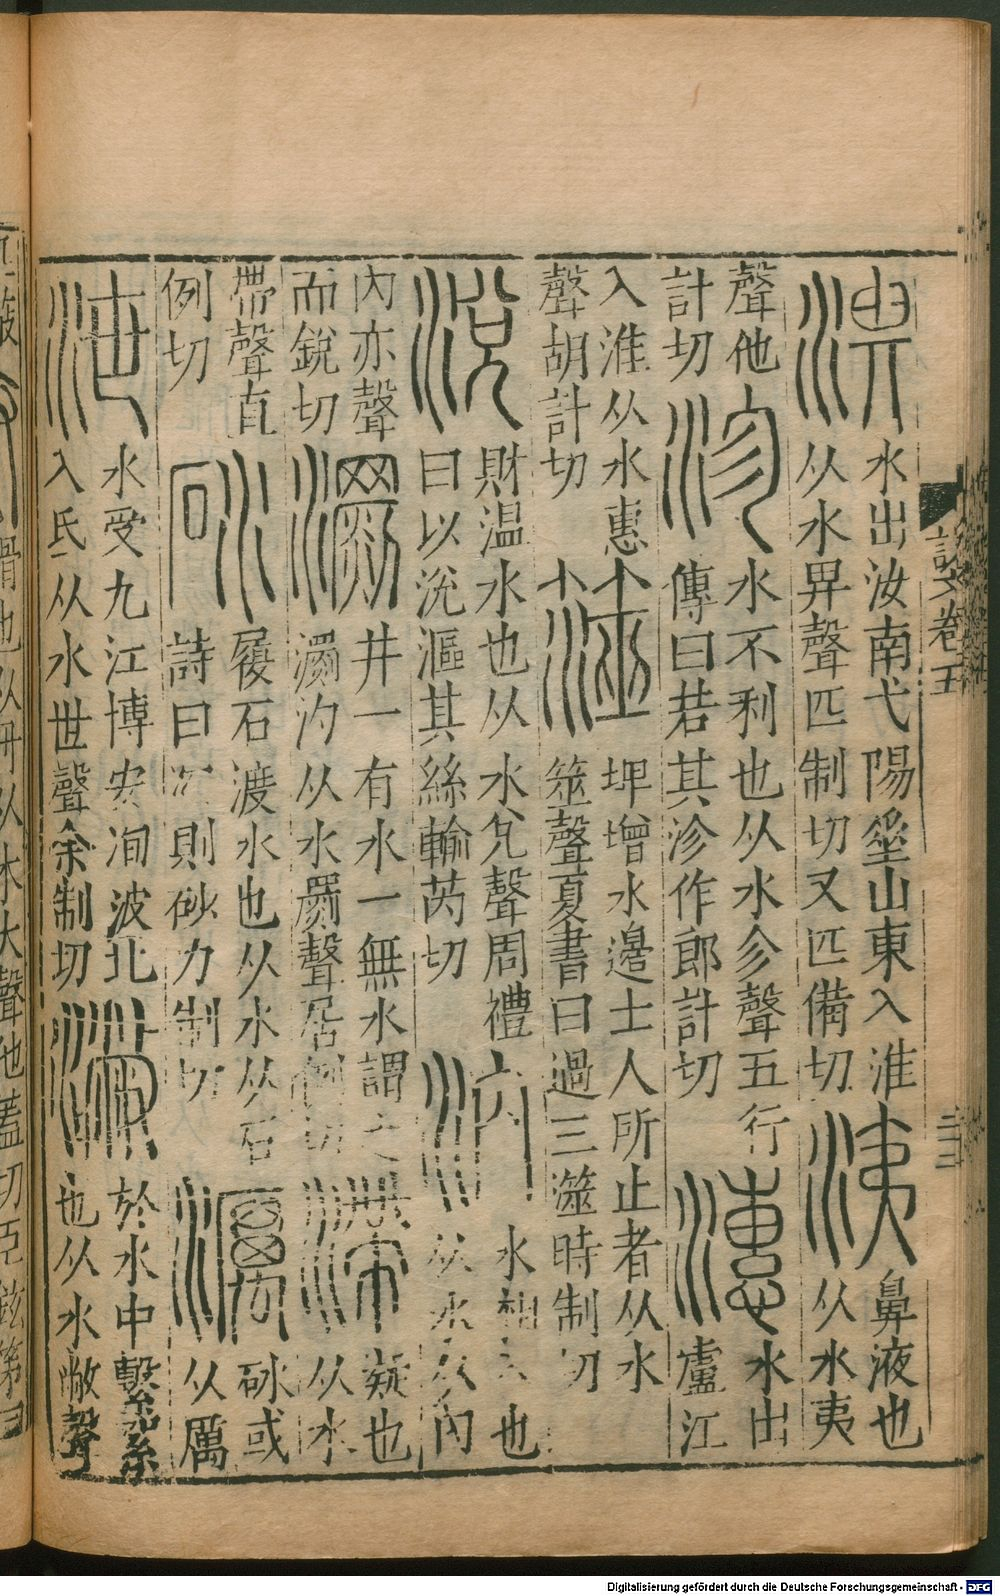 淠
水出汝南弋陽垒山東入淮
从水畀聲匹制切又匹備切
洟
鼻液也
从水夷
聲他
計切
沴
水不利也从水㐱聲五行
傳曰若其沴作郎計切
潓
水出
廬江
入淮从水惠
聲胡計切
澨
埤增水邊土人所止者从水
筮聲夏書曰過三澨時制切
涗
財温水也从水兌聲周禮
曰以涗漚其絲輸芮切
汭
水相也
从水从內
內亦聲
而銳切
瀱
井一有水一無水謂之
瀱汋从水罽聲居例切
滯
凝也
从水
帶聲直
例切
砅
履石渡水也从水从石
詩曰深則砅力制切
濿
砅或
从厲
泄
水受九江博安洵波北
入氐从水世聲余制切
潎
於水中擊絮
也从水敝聲
說文卷五
滑也从廾从水大聲他蓋切臣鉉等曰
Digitalisierung gefördert durch die Deutsche Forschungsgemeinschaft - DFG